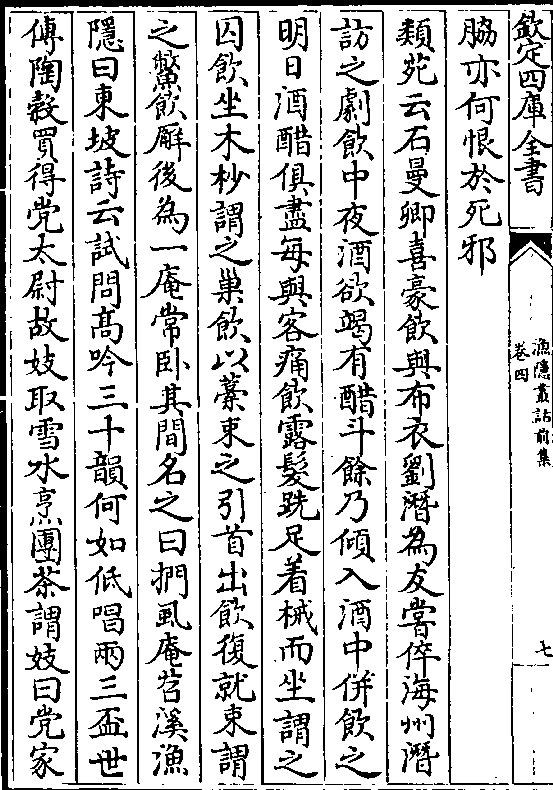 欽定四庫全書
漁隱叢話前集
卷四
七
脇亦何恨於死邪
類苑云石曼卿喜豪飲與布衣劉潛為友嘗倅海州潛
訪之劇飲中夜酒欲竭有醋斗餘乃傾入酒中併飲之
明日酒醋俱盡每與客痛飲露髮跣足着械而坐謂之
囚飲坐木杪謂之巢飲以藁束之引首出飲復就束謂
之鱉飲廨後為一庵常卧其間名之曰捫虱庵苕溪漁
隱曰東坡詩云試問髙吟三十韻何如低唱兩三盃世
傳陶穀買得党太尉故妓取雪水烹團茶謂妓曰党家